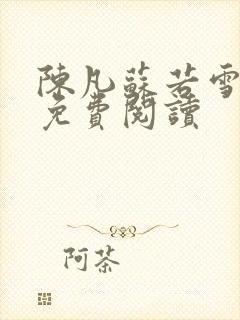 陳凡蘇若雪
免費閱讀
阿茶